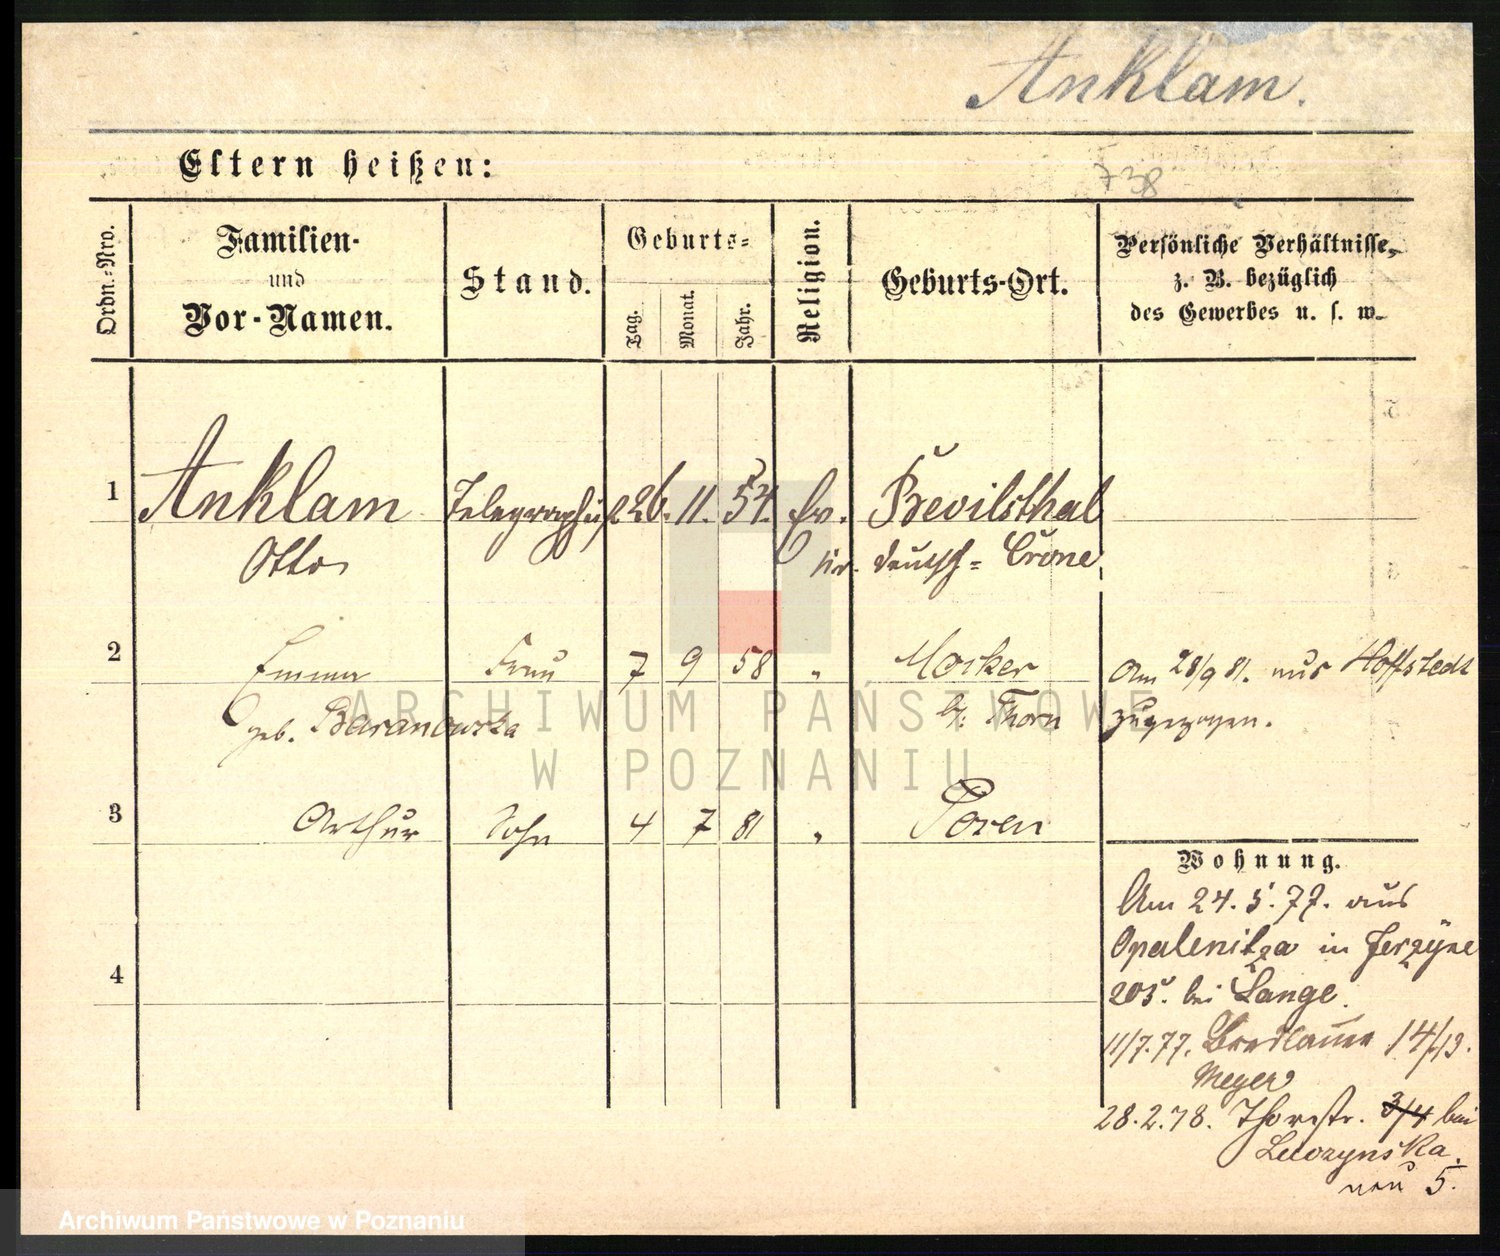 Anklam.
Eltern heißen:
738
Ordn.-Nro.
Familien-
und
Vor-Namen.
Stand.
Geburts-
Tag.
Monat.
Jahr.
Religion.
Geburts-Ort.
Persönliche Verhältnisse,
z. B. bezüglich
des Gewerbes u. s. w.
1 Anklam Telegraphist 26. 11. 54. Ev. Brevilsthal
Otto Kr. deutsch-Crone
2 Emma Frau 7 9 58 " Mocker Am 28/9 81. aus Hoffstedt
geb. Baranowska b/ Thorn zugezogen.
3 Arthur Sohn 4 7 81 " Posen
Wohnung.
Am 24. 5. 77. aus
Opalenitza in Jerzyce
205. bei Lange.
4
11/7.77. Breslauer 14/13.
Meyer
28.2.78. Thorstr. 3/4 bei
nun 5.
ARCHIWUM PAŃSTWOWE
W POZNANIU
Archiwum Państwowe w Poznaniu